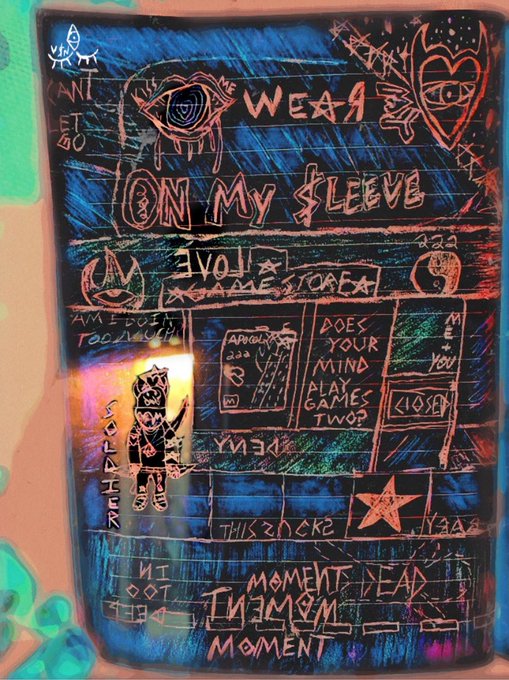 VSN
CANT
LET
GO
WEAR
MY
ON MY $LEEVE
LOVE
GAME STORE
222
AM I DOIN
TOO MUCH
APOCOLY
222
M
DOES
YOUR
MIND
PLAY
GAMES
TWO?
ME
+
YOU
CLOSED
SOLDIER
DENY
THIS SUCKS
IN
TOO
DEEP
MOMENT DEAD
MOMENT
MOMENT